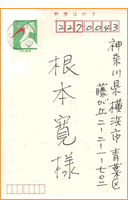 郵便はがき
2270043
神奈川県横浜市青葉区
藤が丘二-二一-一-七〇二
根本寛様